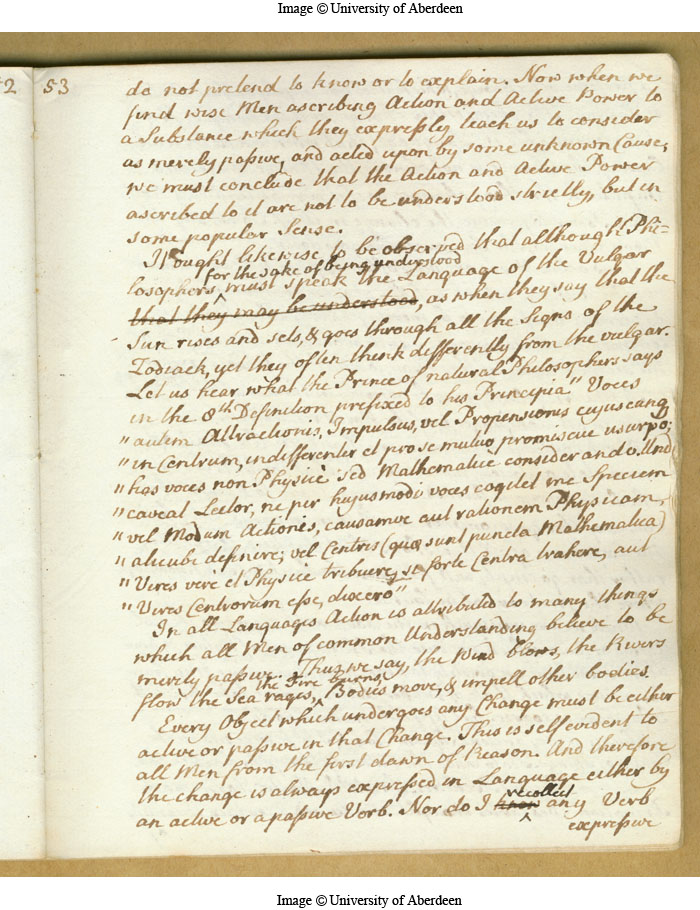 Image © University of Aberdeen
2
53
do not pretend to know or to explain. Now when we
find wise Men ascribing Action and Active Power to
a Substance which they expressly teach us to consider
as merely passive, and acted upon by some unknown Cause,
we must conclude that the Action and Active Power
ascribed to it are not to be understood strictly, but in
some popular Sense.
It ought likewise to be observed that although Phi-
for the sake of being understood
losophers, must speak the Language of the Vulgar
that they may be understood, as when they say that the
Sun rises and sets, & goes through all the Signs of the
Zodiack, yet they often think differently from the vulgar.
Let us hear what the Prince of natural Philosophers says
in the 8th Definition prefixed to his Principia " Voces
" autem Attractionis, Impulsus, vel Propensionis cujuscunq
" in Centrum, indifferenter et pro se mutuo promiscue usurpo;
" has voces non Physice sed Mathematice considerando. Und
" caveat Lector, ne per hujusmodi voces cogitet me Speciem
" vel Modum Actionis, causamve aut rationem Physicam
" alicubi definire; vel Centris (quæ sunt puncta Mathematica)
" Vires vere et Physice tribuere, si forte Centra trahere, aut
" Vires Centrorum esse, dixero"
In all Languages Action is attributed to many things
which all Men of common Understanding believe to be
merely passive. Thus we say, the Wind blows, the Rivers
the Fire burns,
flow the Sea rages, Bodies move, & impell other bodies.
Every Object which undergoes any Change must be either
active or passive in that Change. This is self evident to
all Men from the first dawn of Reason. And therefore
the change is always expressed in Language either by
recollect
an active or a passive Verb. Nor do I know any Verb
expressive
Image © University of Aberdeen